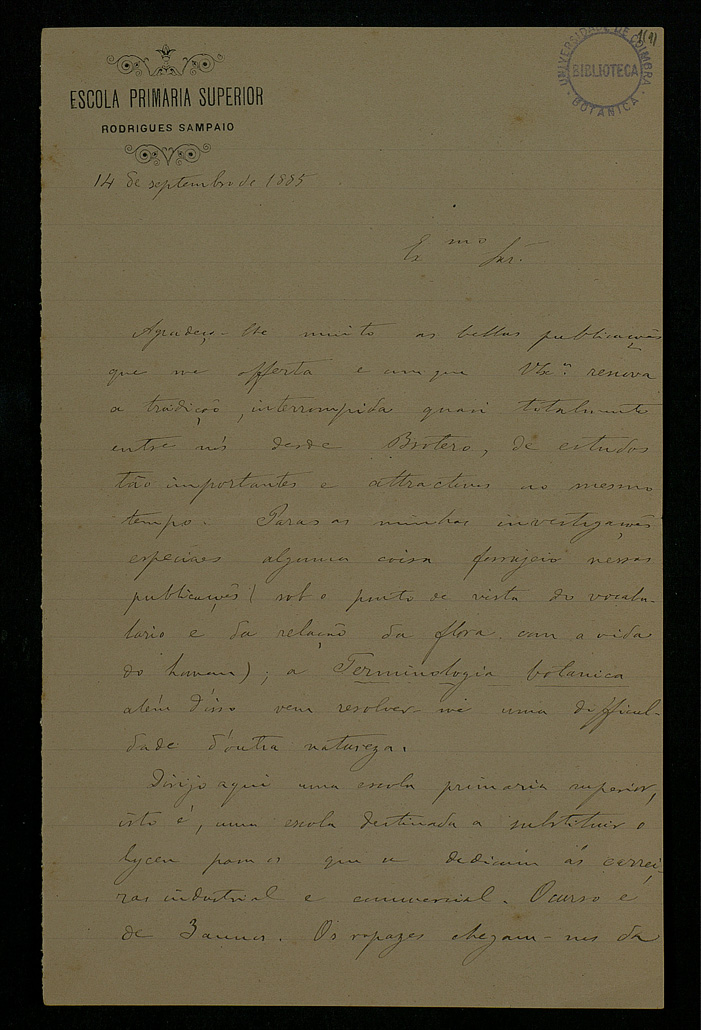 ESCOLA PRIMARIA SUPERIOR
RODRIGUES SAMPAIO
UNIVERSIDADE DE COIMBRA
BIBLIOTECA
BOTANICA
14 de septembro de 1885
Ex.mo Snr.
Agradeço-lhe muito as bellas publicações
que me offerta e em que V Ex.ª renova
a tradição, interrompida quasi totalmente
entre nós desde Brotero, de estudos
tão importantes e attractivos ao mesmo
tempo. Para as minhas investigações
especiaes alguma coisa forrageio nessas
publicações (sob o ponto de vista do vocabu-
lario e da relação da flora com a vida
do homem); a Terminologia botanica
além d'isso vem resolver-me uma difficul-
dade d'outra natureza.
Dirijo aqui uma escola primaria superior,
isto é, uma escola destinada a substituir o
lyceu para os que se dedicam ás carrei-
ras industrial e commercial. O curso é
de 3 annos. Os rapazes chegam-nos da